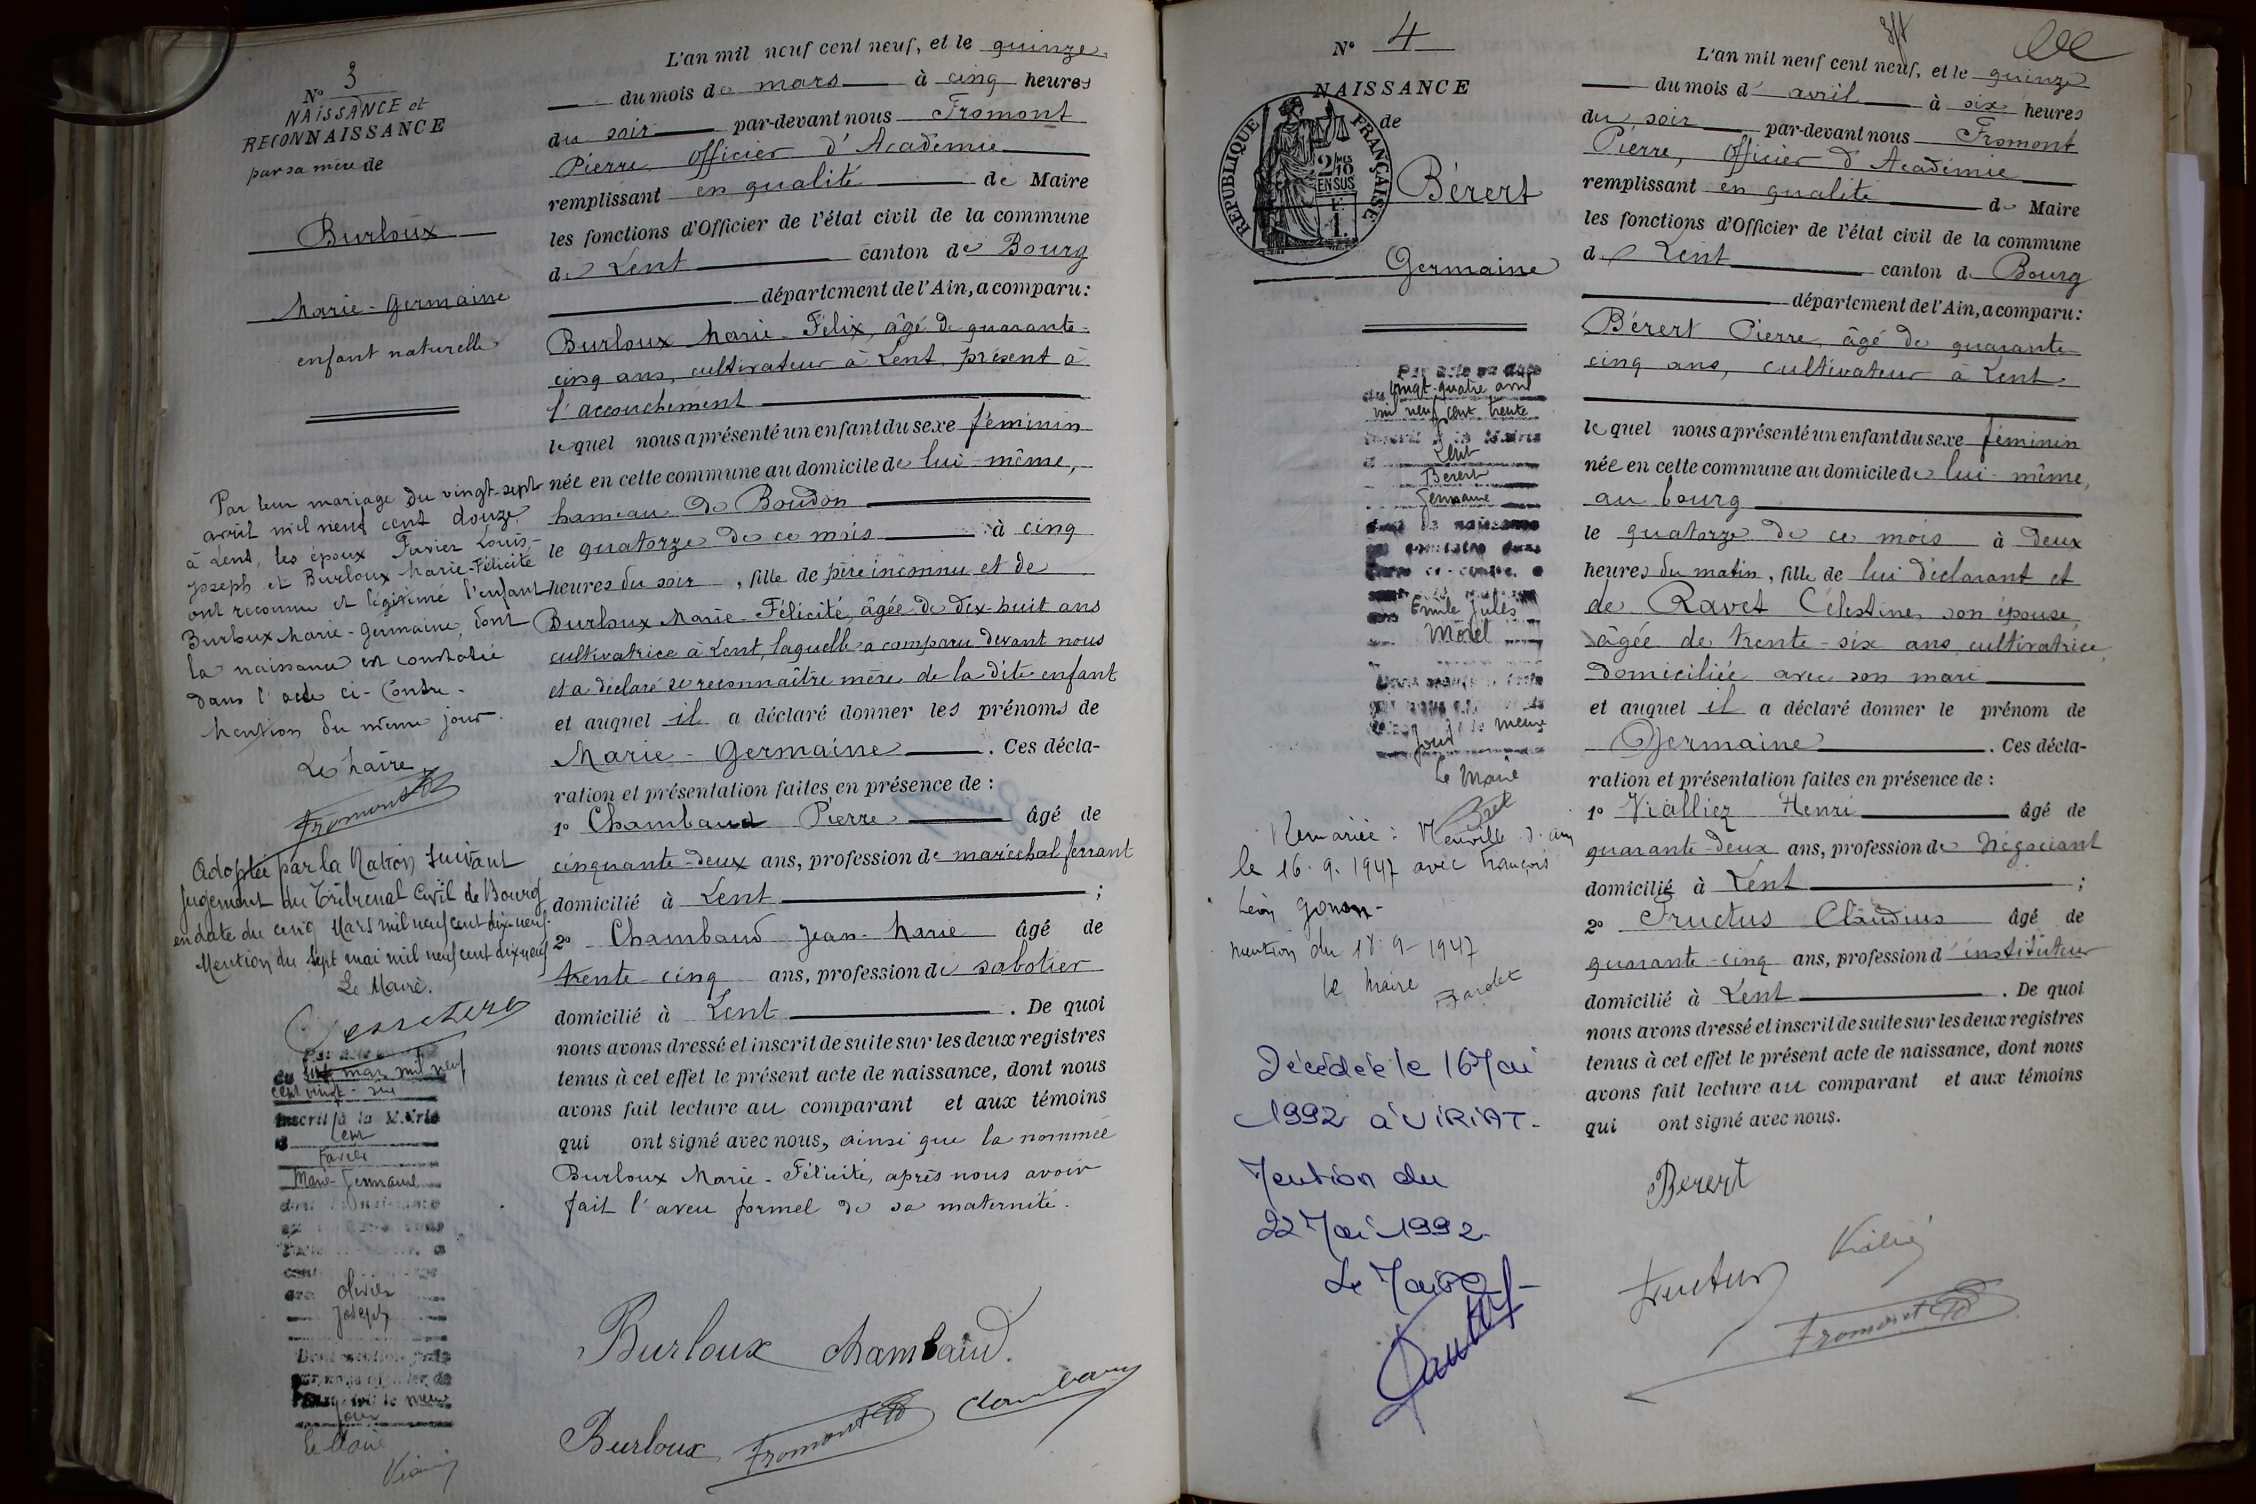 N° 3
NAISSANCE et
RECONNAISSANCE
par sa mère de
Burloux
Marie-Germaine
enfant naturelle
Par leur mariage du vingt-sept
avril mil neuf cent douze
à Lent, les époux Favier Louis-
Joseph et Burloux Marie-Félicité
ont reconnu et légitimé l'enfant
Burloux Marie-Germaine, dont
la naissance est constatée
dans l'acte ci-contre.
Mention du même jour.
Le Maire
Fromont
Adoptée par la Nation suivant
jugement du Tribunal Civil de Bourg
en date du cinq Mars mil neuf cent dix-neuf.
Mention du sept mai mil neuf cent dix neuf
Le Maire.
mil neuf
cent vingt-six
inscrit à la Mairie
Lent
Marie-Germaine
Olivier
Joseph
jour
Le Maire
L'an mil neuf cent neuf, et le quinze
du mois de mars à cinq heures
du soir par-devant nous Fromont
Pierre, Officier d'Académie
remplissant en qualité de Maire
les fonctions d'Officier de l'état civil de la commune
de Lent canton de Bourg
département de l'Ain, a comparu:
Burloux Marie-Félix, âgé de quarante-
cinq ans, cultivateur à Lent, présent à
l'accouchement
lequel nous a présenté un enfant du sexe féminin
née en cette commune au domicile de lui-même,
hameau de Boudon
le quatorze de ce mois à cinq
heures du soir, fille de père inconnu et de
Burloux Marie-Félicité, âgée de dix-huit ans
cultivatrice à Lent, laquelle a comparu devant nous
et a déclaré se reconnaître mère de la dite enfant
et auquel il a déclaré donner les prénoms de
Marie-Germaine. Ces décla-
ration et présentation faites en présence de :
1° Chambaud Pierre âgé de
cinquante-deux ans, profession de maréchal ferrant
domicilié à Lent ;
2° Chambaud Jean-Marie âgé de
trente-cinq ans, profession de sabotier
domicilié à Lent. De quoi
nous avons dressé et inscrit de suite sur les deux registres
tenus à cet effet le présent acte de naissance, dont nous
avons fait lecture au comparant et aux témoins
qui ont signé avec nous, ainsi que la nommée
Burloux Marie-Félicité, après nous avoir
fait l'aveu formel de sa maternité.
Burloux Chambaud.
Burloux Fromont Chambaud
N° 4
NAISSANCE
de
RÉPUBLIQUE FRANÇAISE
2/10
EN SUS
F.
1.
Bérert
Germaine
Par acte en date
du vingt-quatre avril
mil neuf cent trente
inscrit à la Mairie
Lent
Bérert
Germaine
dont la naissance
Emile Jules
Morel
le même
jour
Le Maire
Remariée : Neuville s. ain
le 16.9.1947 avec François
Léon Gonon-
mention du 18.9-1947
le Maire
Décédée le 16 Mai
1992 à VIRIAT-
Mention du
22 Mai 1992.
Le Maire
L'an mil neuf cent neuf, et le quinze
du mois d'avril à six heures
du soir par-devant nous Fromont
Pierre, Officier d'Académie
remplissant en qualité de Maire
les fonctions d'Officier de l'état civil de la commune
de Lent canton de Bourg
département de l'Ain, a comparu:
Bérert Pierre, âgé de quarante
cinq ans, cultivateur à Lent
lequel nous a présenté un enfant du sexe féminin
née en cette commune au domicile de lui-même,
au bourg
le quatorze de ce mois à deux
heures du matin, fille de lui déclarant et
de Ravet Célestine, son épouse,
âgée de trente-six ans, cultivatrice,
domiciliée avec son mari
et auquel il a déclaré donner le prénom de
Germaine. Ces décla-
ration et présentation faites en présence de :
1° Vialliez Henri âgé de
quarante-deux ans, profession de Négociant
domicilié à Lent ;
2° Fructus Claudius âgé de
quarante-cinq ans, profession d'instituteur
domicilié à Lent. De quoi
nous avons dressé et inscrit de suite sur les deux registres
tenus à cet effet le présent acte de naissance, dont nous
avons fait lecture au comparant et aux témoins
qui ont signé avec nous.
Bérert
Fructus
Fromont